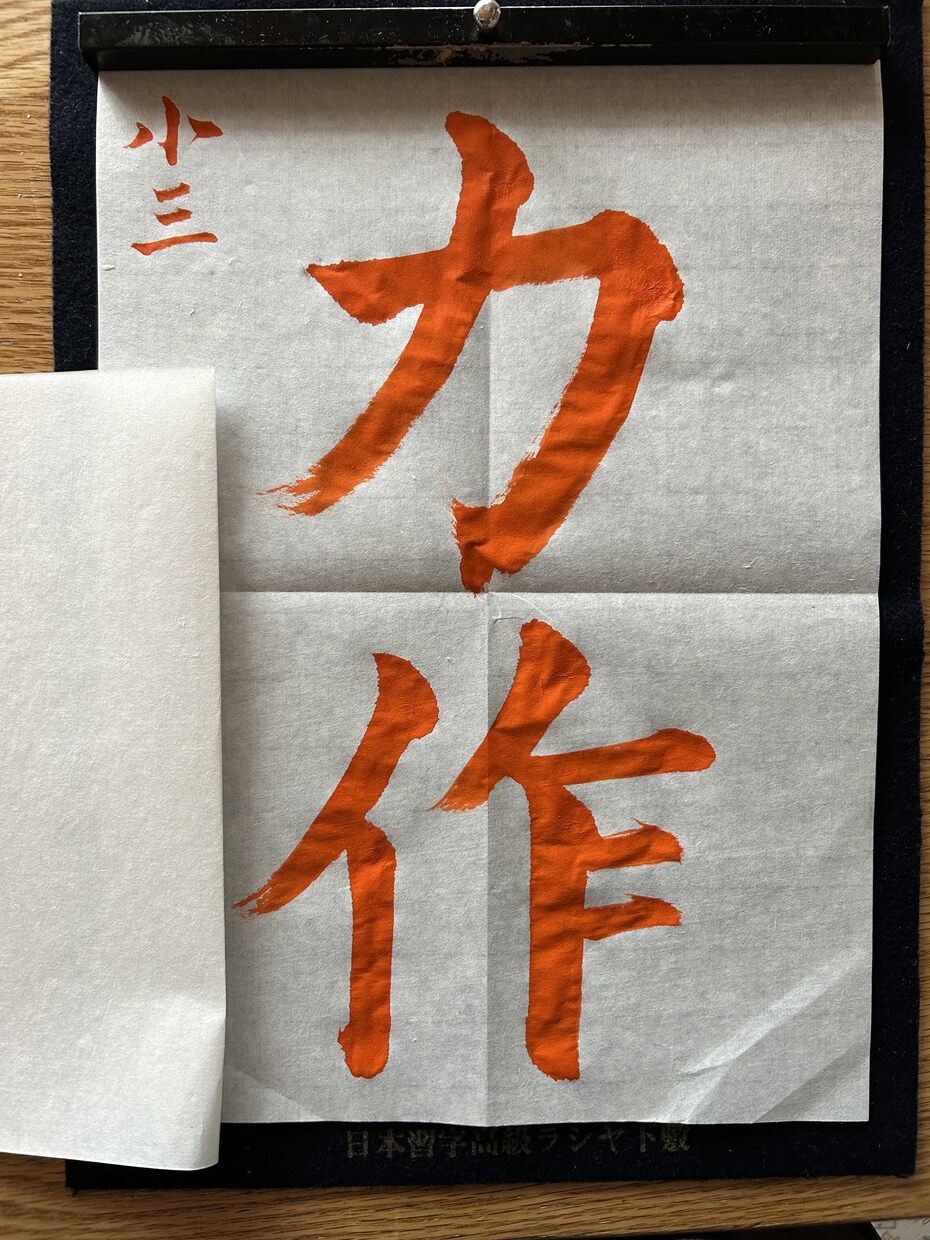 力作
小三
日本習字高級ラシヤト敷